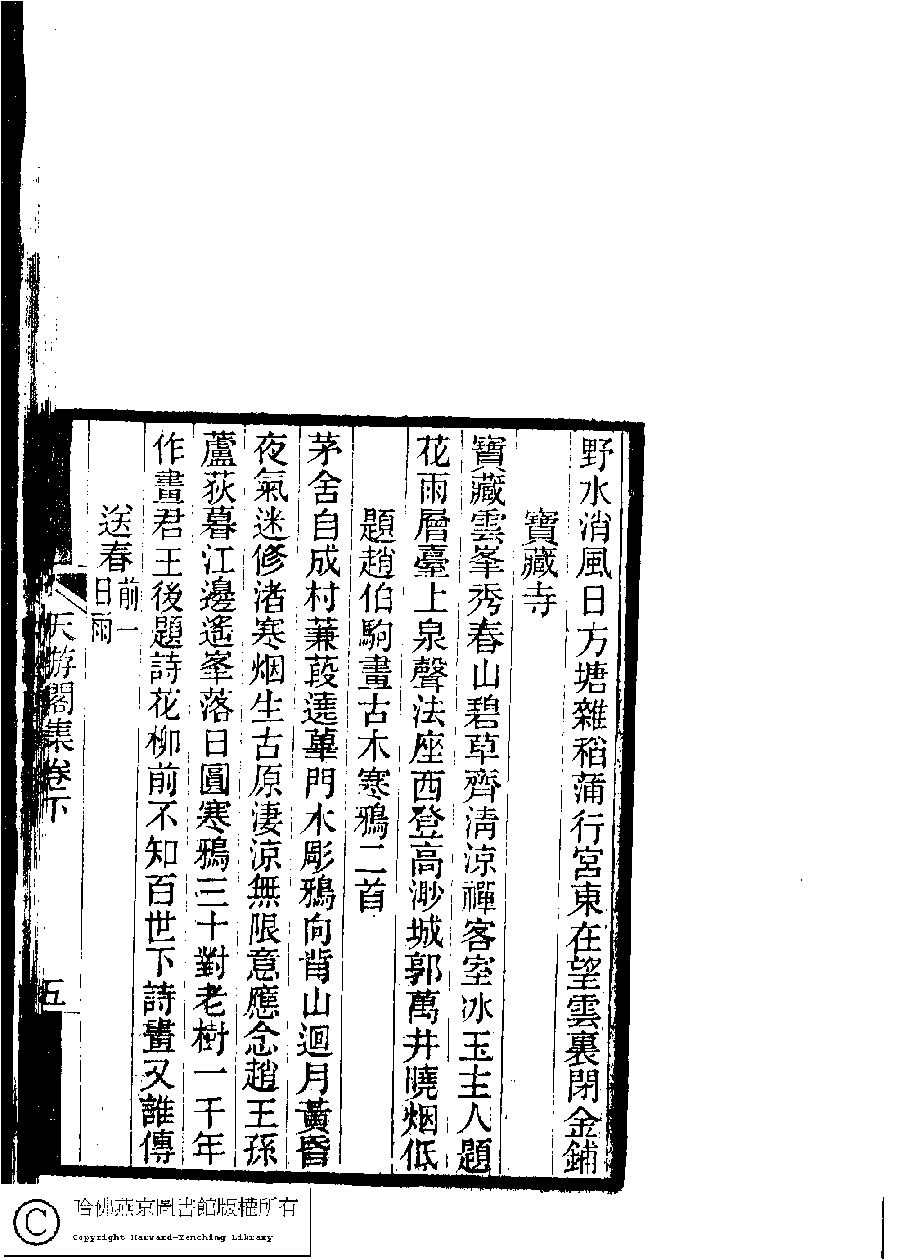 野水消風日方塘雜稻蒲行宮東在望雲裏閉金鋪
寶藏寺
寶藏雲峯秀春山碧草齊清涼禪客室冰玉主人題
花雨層臺上泉聲法座西登高渺城郭萬井曉烟低
題趙伯駒畫古木寒鴉二首
茅舍自成村蒹葭遶蓽門水彫鴉向背山迴月黃昏
夜氣迷修渚寒烟生古原淒涼無限意應念趙王孫
蘆荻暮江邊遙峯落日圓寒鴉三十對老樹一千年
作畫君王後題詩花柳前不知百世下詩畫又誰傳
送春前一日雨
天游閣集卷下
五
哈佛燕京圖書館版權所有
Copyright Harvard-Yenching Library